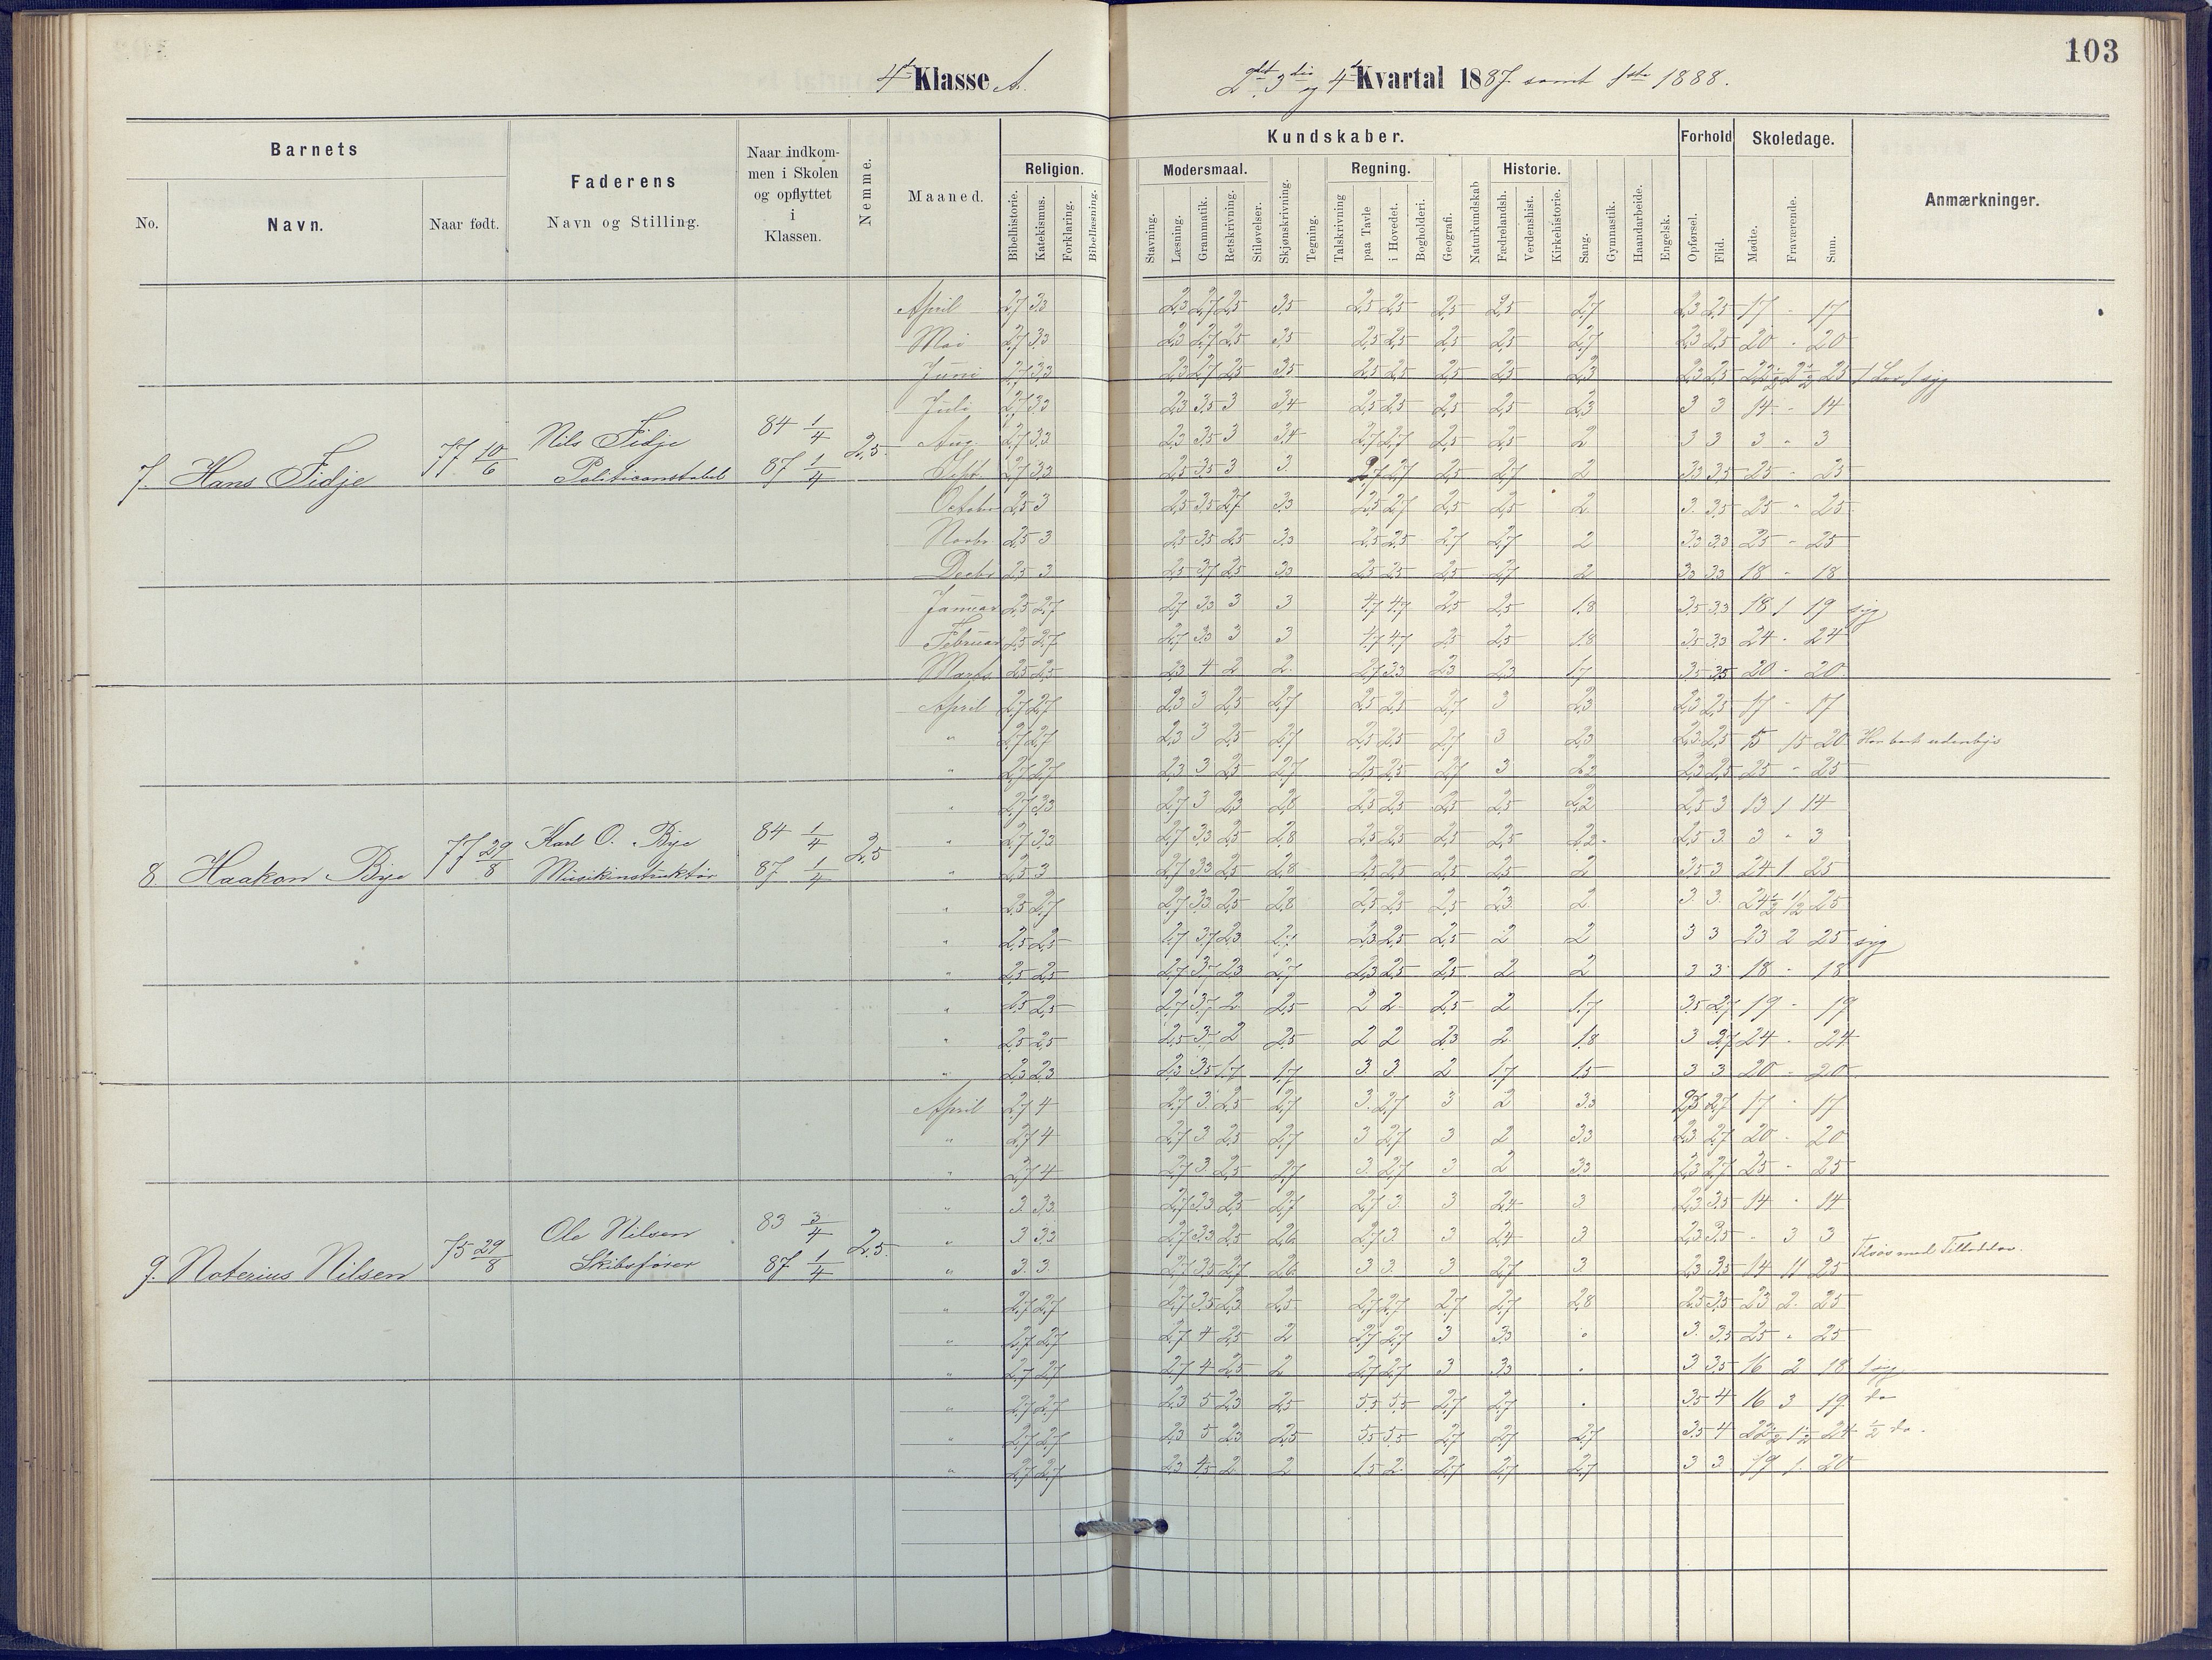 103
4de Klasse A.
2det 3die og 4de Kvartal 1887 samt 1ste 1888.
Barnets
No.
Navn.
Naar født.
Faderens
Navn og Stilling.
Naar indkom-
men i Skolen
og opflyttet
i
Klassen.
Nemme.
Maaned.
Kundskaber.
Religion.
Bibelhistorie.
Katekismus.
Forklaring.
Bibellæsning.
Modersmaal.
Stavning.
Læsning.
Grammatik.
Retskrivning.
Stiløvelser.
Skjønskrivning.
Tegning.
Regning.
Talskrivning
paa Tavle
i Hovedet.
Bogholderi.
Geografi.
Naturkundskab
Historie.
Fædrelandsh.
Verdenshist.
Kirkehistorie.
Sang.
Gymnastik.
Haandarbeide.
Engelsk.
Forhold
Opførsel.
Flid.
Skoledage.
Mødte.
Fraværende.
Sum.
Anmærkninger.
7. Hans Fidje 77 10/6 Nils Fidje Politiconstabel 84 1/4 87 1/4 2,5
April 2,7 3,3 2,3 2,7 2,5 3,5 2,5 2,5 2,5 2,5 2,7 2,3 2,5 17 - 17
Mai 2,7 3,3 2,3 2,7 2,5 3,5 2,5 2,5 2,5 2,5 2,7 2,3 2,5 20 - 20
Juni 2,7 3,3 2,3 2,7 2,5 3,5 2,5 2,5 2,5 2,5 2,3 2,3 2,5 22 1/2 2 1/2 25 1 Lov 1 syg
Juli 2,7 3,3 2,3 3,5 3 3,4 2,5 2,5 2,5 2,5 2,3 3 3 14 - 14
Aug. 2,7 3,3 2,3 3,5 3 3,4 2,7 2,7 2,5 2,5 2 3 3 3 - 3
Septr 2,7 3,3 2,5 3,5 3 3 2,7 2,7 2,5 2,7 2 3,3 3,5 25 - 25
Octobr 2,5 3 2,5 3,5 2,7 3,3 2,5 2,7 2,5 2,5 2 3 3,5 25 - 25
Novbr 2,5 3 2,5 3,5 2,5 3,3 2,5 2,5 2,7 2,7 2 3,3 3,3 25 - 25
Decbr 2,5 3 2,5 3,7 2,5 3,3 2,5 2,5 2,5 2,7 2 3,3 3,3 18 - 18
Januar 2,5 2,7 2,7 3,3 3 3 4,7 4,7 2,5 2,5 1,8 3,5 3,3 18 1 19 syg
Februar 2,5 2,7 2,7 3,3 3 3 4,7 4,7 2,5 2,5 1,8 3,5 3,3 24 - 24
Marts 2,5 2,5 2,3 4 2 2 2,7 3,3 2,3 2,3 1,7 3,5 3,5 20 - 20
8. Haakon Bye 77 29/8 Karl O. Bye Musikinstruktør 84 1/4 87 1/4 2,5
April 2,7 2,7 2,3 3 2,5 2,7 2,5 2,5 2,7 3 2,3 2,3 2,5 17 - 17
" 2,7 2,7 2,3 3 2,5 2,7 2,5 2,5 2,7 3 2,3 2,3 2,5 15 15 20 Har været udenbys
" 2,7 2,7 2,3 3 2,5 2,7 2,5 2,5 2,7 3 2,2 2,3 2,5 25 - 25
" 2,7 3,3 2,7 3 2,3 2,8 2,5 2,5 2,5 2,5 2,2 2,5 3 13 1 14
" 2,7 3,3 2,7 3,3 2,5 2,8 2,5 2,5 2,5 2,5 2,2 2,5 3 3 - 3
" 2,5 3 2,7 3,3 2,5 2,8 2,5 2,5 2,5 2,5 2 3,5 3 24 1 25
" 2,5 2,7 2,7 3,3 2,5 2,8 2,5 2,5 2,5 2,3 2 3 3 24 1/2 1/2 25
" 2,5 2,5 2,7 3,7 2,3 2,7 2,3 2,5 2,5 2 2 3 3 23 2 25 syg
" 2,5 2,5 2,7 3,7 2,3 2,7 2,3 2,5 2,5 2 2 3 3 18 - 18
" 2,5 2,5 2,7 3,7 2 2,5 2 2 2,5 2 1,7 3,5 2,7 19 - 19
" 2,5 2,5 2,5 3,7 2 2,5 2 2 2,3 2 1,8 3 2,7 24 - 24
" 2,3 2,3 2,3 3,5 1,7 1,7 3 3 2 1,7 1,5 3 3 20 - 20
9. Noterius Nilsen 75 29/8 Ole Nilsen Skibsfører 83 3/4 87 1/4 2,5
April 2,7 4 2,7 3 2,5 2,7 3 2,7 3 2 3,3 2,3 2,7 17 - 17
" 2,7 4 2,7 3 2,5 2,7 3 2,7 3 2 3,3 2,3 2,7 20 - 20
" 2,7 4 2,7 3 2,5 2,7 3 2,7 3 2 3,3 2,3 2,7 25 - 25
" 3 3,3 2,7 3,3 2,5 2,7 2,7 3 3 2,4 3 2,3 3,5 14 - 14
" 3 3,3 2,7 3,3 2,5 2,6 2,7 3 3 2,4 3 2,3 3,5 - 3 3
" 3 3 2,7 3,5 2,7 2,6 3 3 3 2,7 3 2,3 3,5 14 11 25 Tilsøs med Tilladelse.
" 2,7 2,7 2,7 3,5 2,3 2,5 2,7 2,7 2,7 2,7 2,8 2,5 3,5 23 2 25
" 2,7 2,7 2,7 4 2,5 2 2,7 2,7 3 3,3 " 3 3,5 25 " 25
" 2,7 2,7 2,7 4 2,5 2 2,7 2,7 3 3,3 " 3 3,5 16 2 18 1 syg
" 2,7 2,7 2,3 5 2,3 2,5 5,5 5,5 2,7 2,7 " 3,5 4 16 3 19 do
" 2,7 2,7 2,3 5 2,3 2,5 5,5 5,5 2,7 2,7 2,7 3,5 4 22 1/2 1 1/2 24 1/2 do.
" 2,7 2,7 2,3 4,5 2 2 1,5 2 2,7 2,7 2,7 3 3 19 1 20